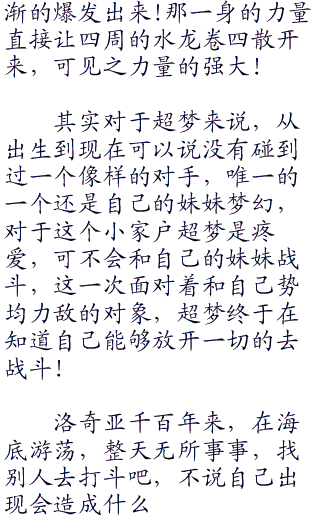 渐的爆发出来!那一身的力量
直接让四周的水龙卷四散开
来，可见之力量的强大!
其实对于超梦来说，从
出生到现在可以说没有碰到
过一个像样的对手，唯一的
一个还是自己的妹妹梦幻，
对于这个小家户超梦是疼
爱，可不会和自己的妹妹战
斗，这一次面对着和自己势
均力敌的对象，超梦终于在
知道自己能够放开一切的去
战斗!
洛奇亚千百年来，在海
底游荡，整天无所事事，找
别人去打斗吧，不说自己出
现会造成什么